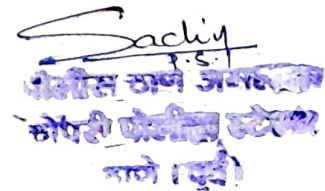 Sachin
P.S.I
पोलीस ठाणे अंमलदार
कोपरी पोलीस स्टेशन
ठाणे (पूर्व)